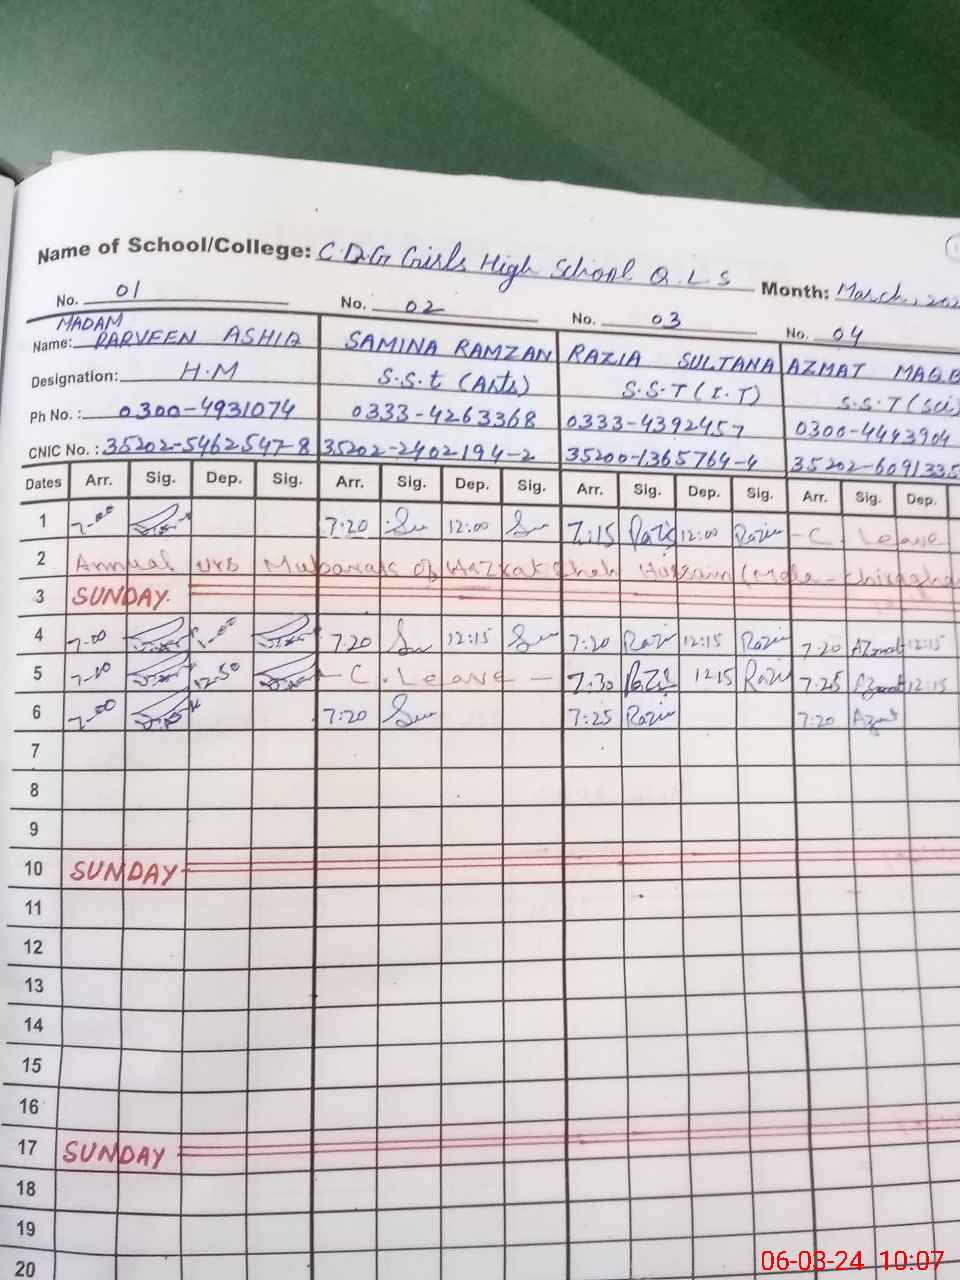 Name of School/College: C.D.G Girls High School Q.L.S Month: March, 202
No. 01 No. 02 No. 03 No. 04
MADAM
Name: PARVEEN ASHIQ SAMINA RAMZAN RAZIA SULTANA AZMAT MAQB
Designation: H.M S.S.t (Arts) S.S.T (I.T) S.S.T (Sci)
Ph No. : 0300-4931074 0333-4263368 0333-4392457 0300-4443904
CNIC No. : 35202-5462547-8 35202-2402194-2 35200-1365764-4 35202-6091335
Dates Arr. Sig. Dep. Sig. Arr. Sig. Dep. Sig. Arr. Sig. Dep. Sig. Arr. Sig. Dep.
1 7-00 7:20 12:00 7:15 Razi 12:00 Razi - C. Leave
2 Annual urs Mubarak of Hazrat Shah Hussain (Mela - Chiragha
3 SUNDAY.
4 7-00 1-00 7:20 12:15 7:20 Razi 12:15 Razi 7:20 Azmat 12:15
5 7-00 12-50 - C. Leave - 7:30 Razi 12:15 Razi 7:25 Azmat 12:15
6 7-00 7:20 7:25 Razi 7:20 Azmat
7
8
9
10 SUNDAY
11
12
13
14
15
16
17 SUNDAY
18
19
20
06-03-24 10:07